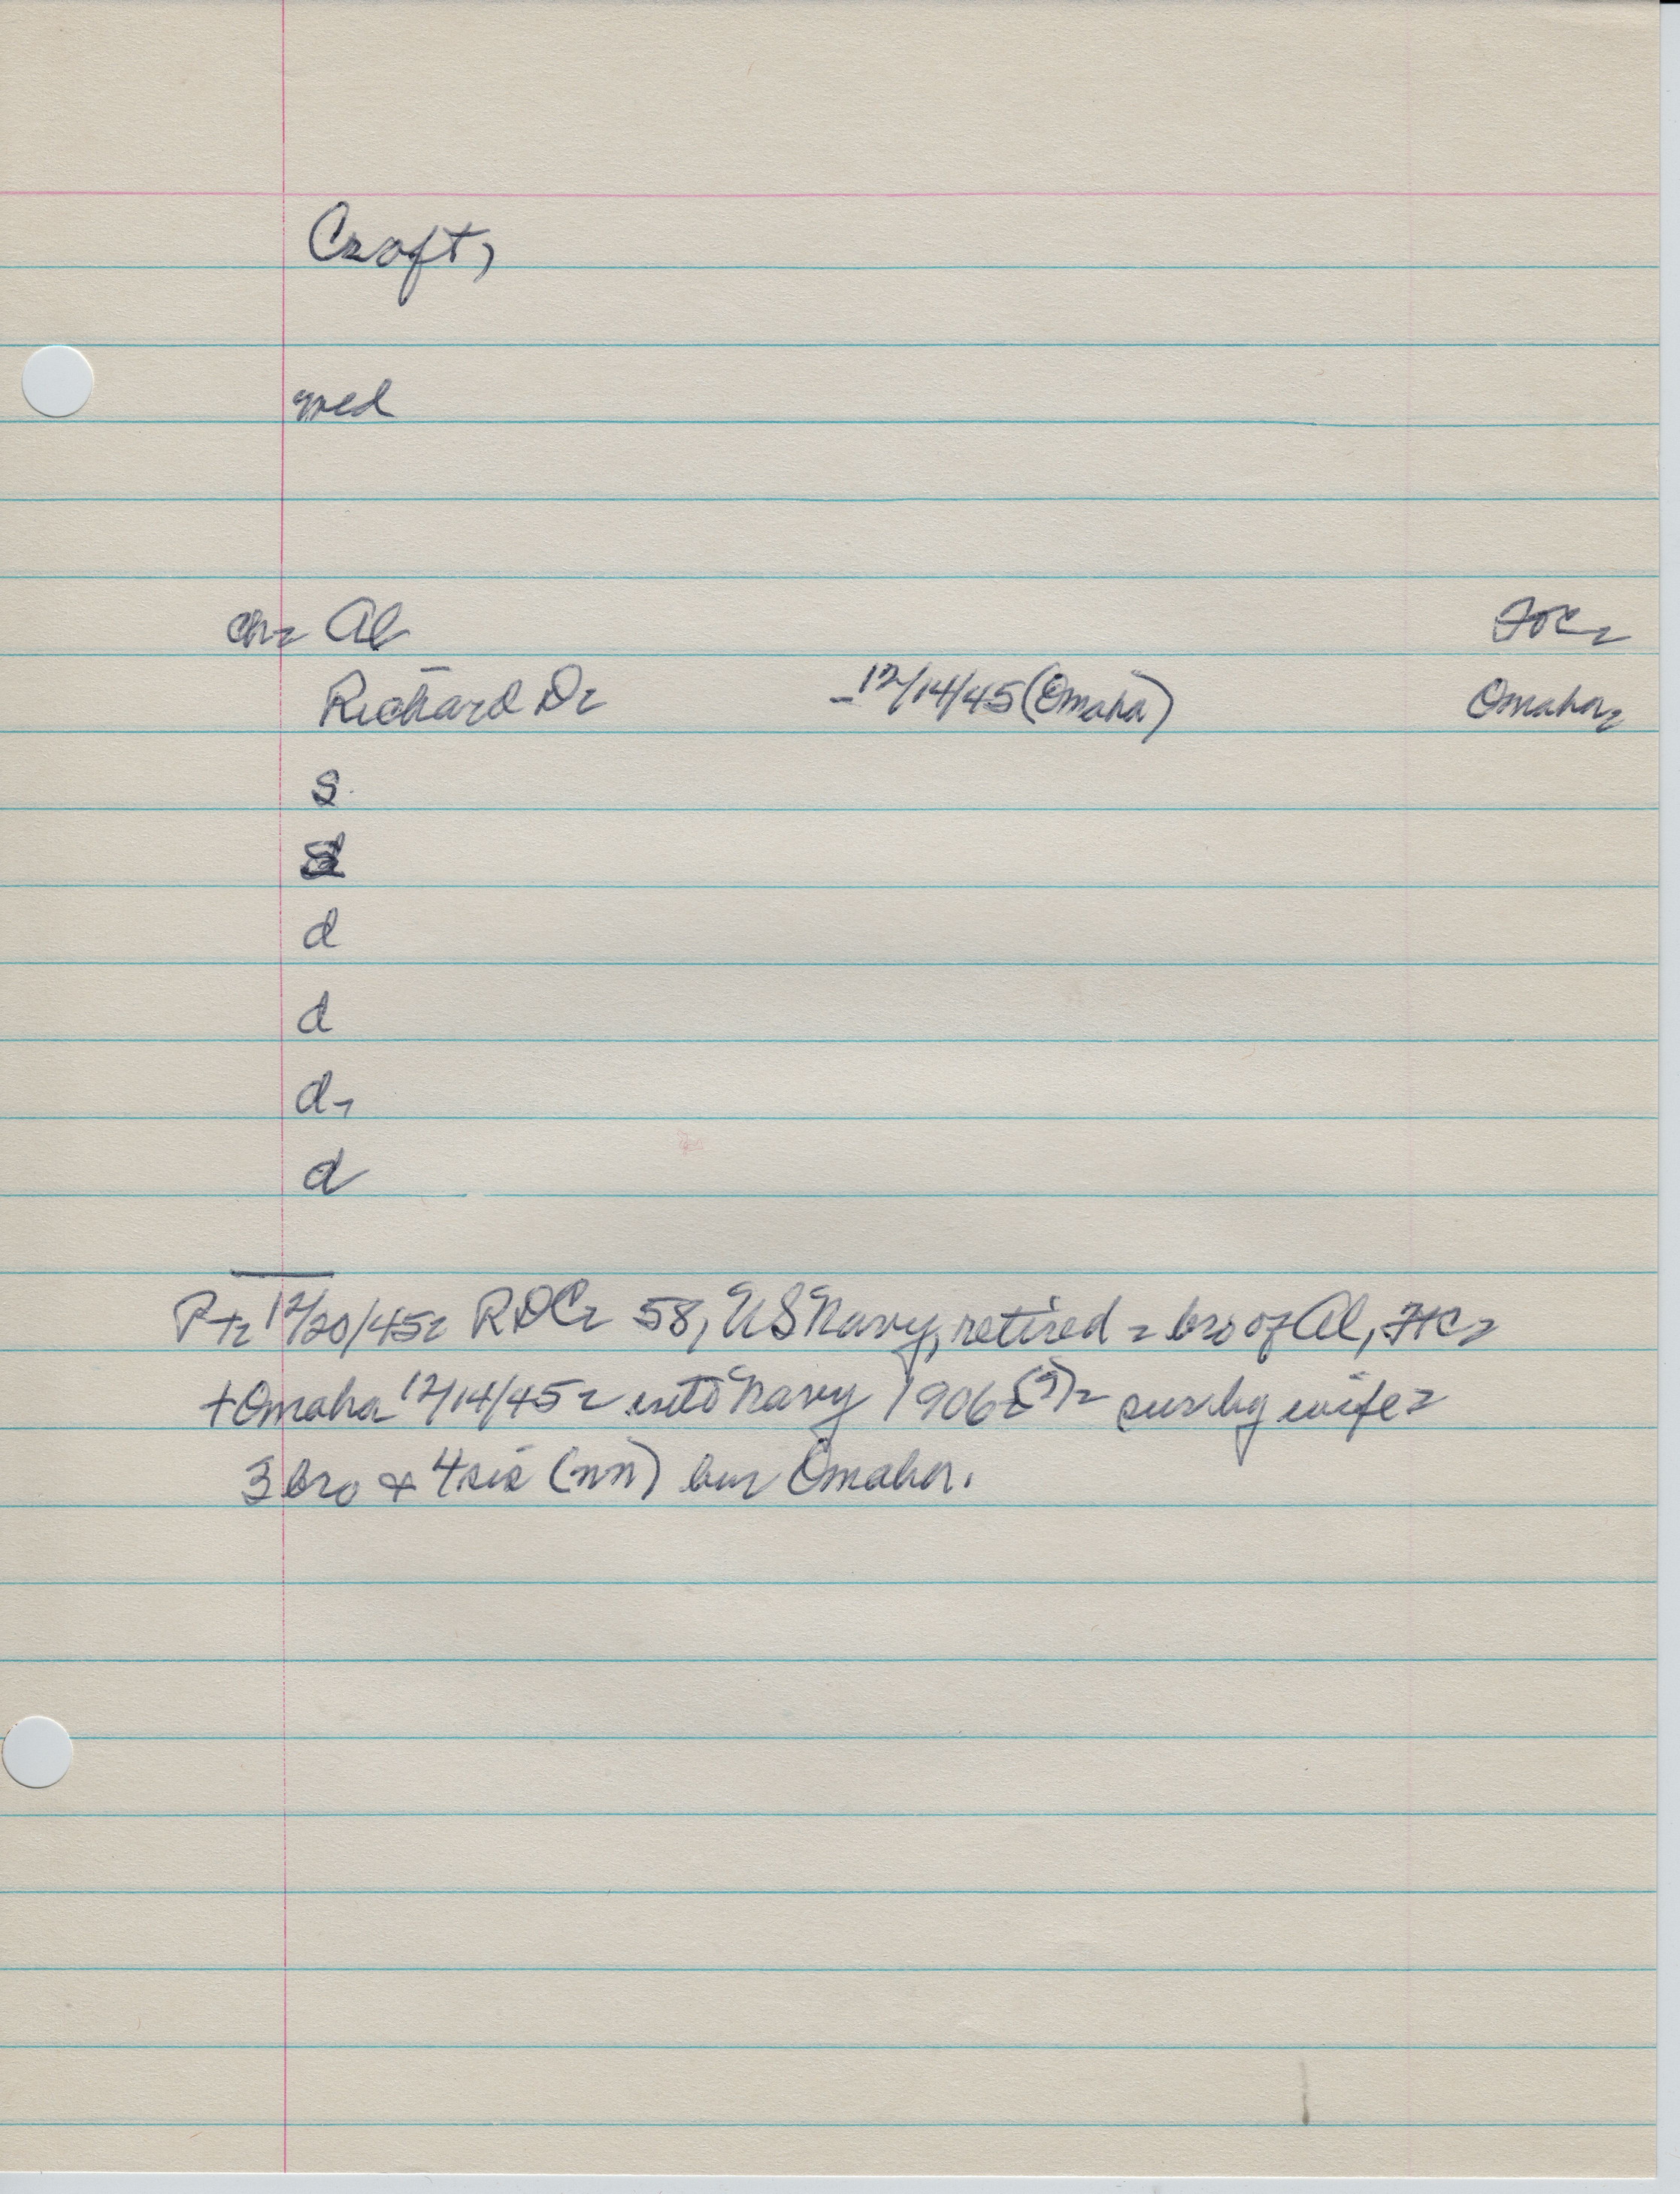 Croft,
med
ch- Al FtC-
Richard D- -12/14/45 (Omaha) Omaha-
s.
d
d
d-
d
Pt- 12/20/45- RDC- 58, US Navy, retired - bro of Al, FtC-
+Omaha 12/14/45 - into Navy 1906 (?)- surv by wife-
3 bro & 4 sis (nn) bur Omaha.